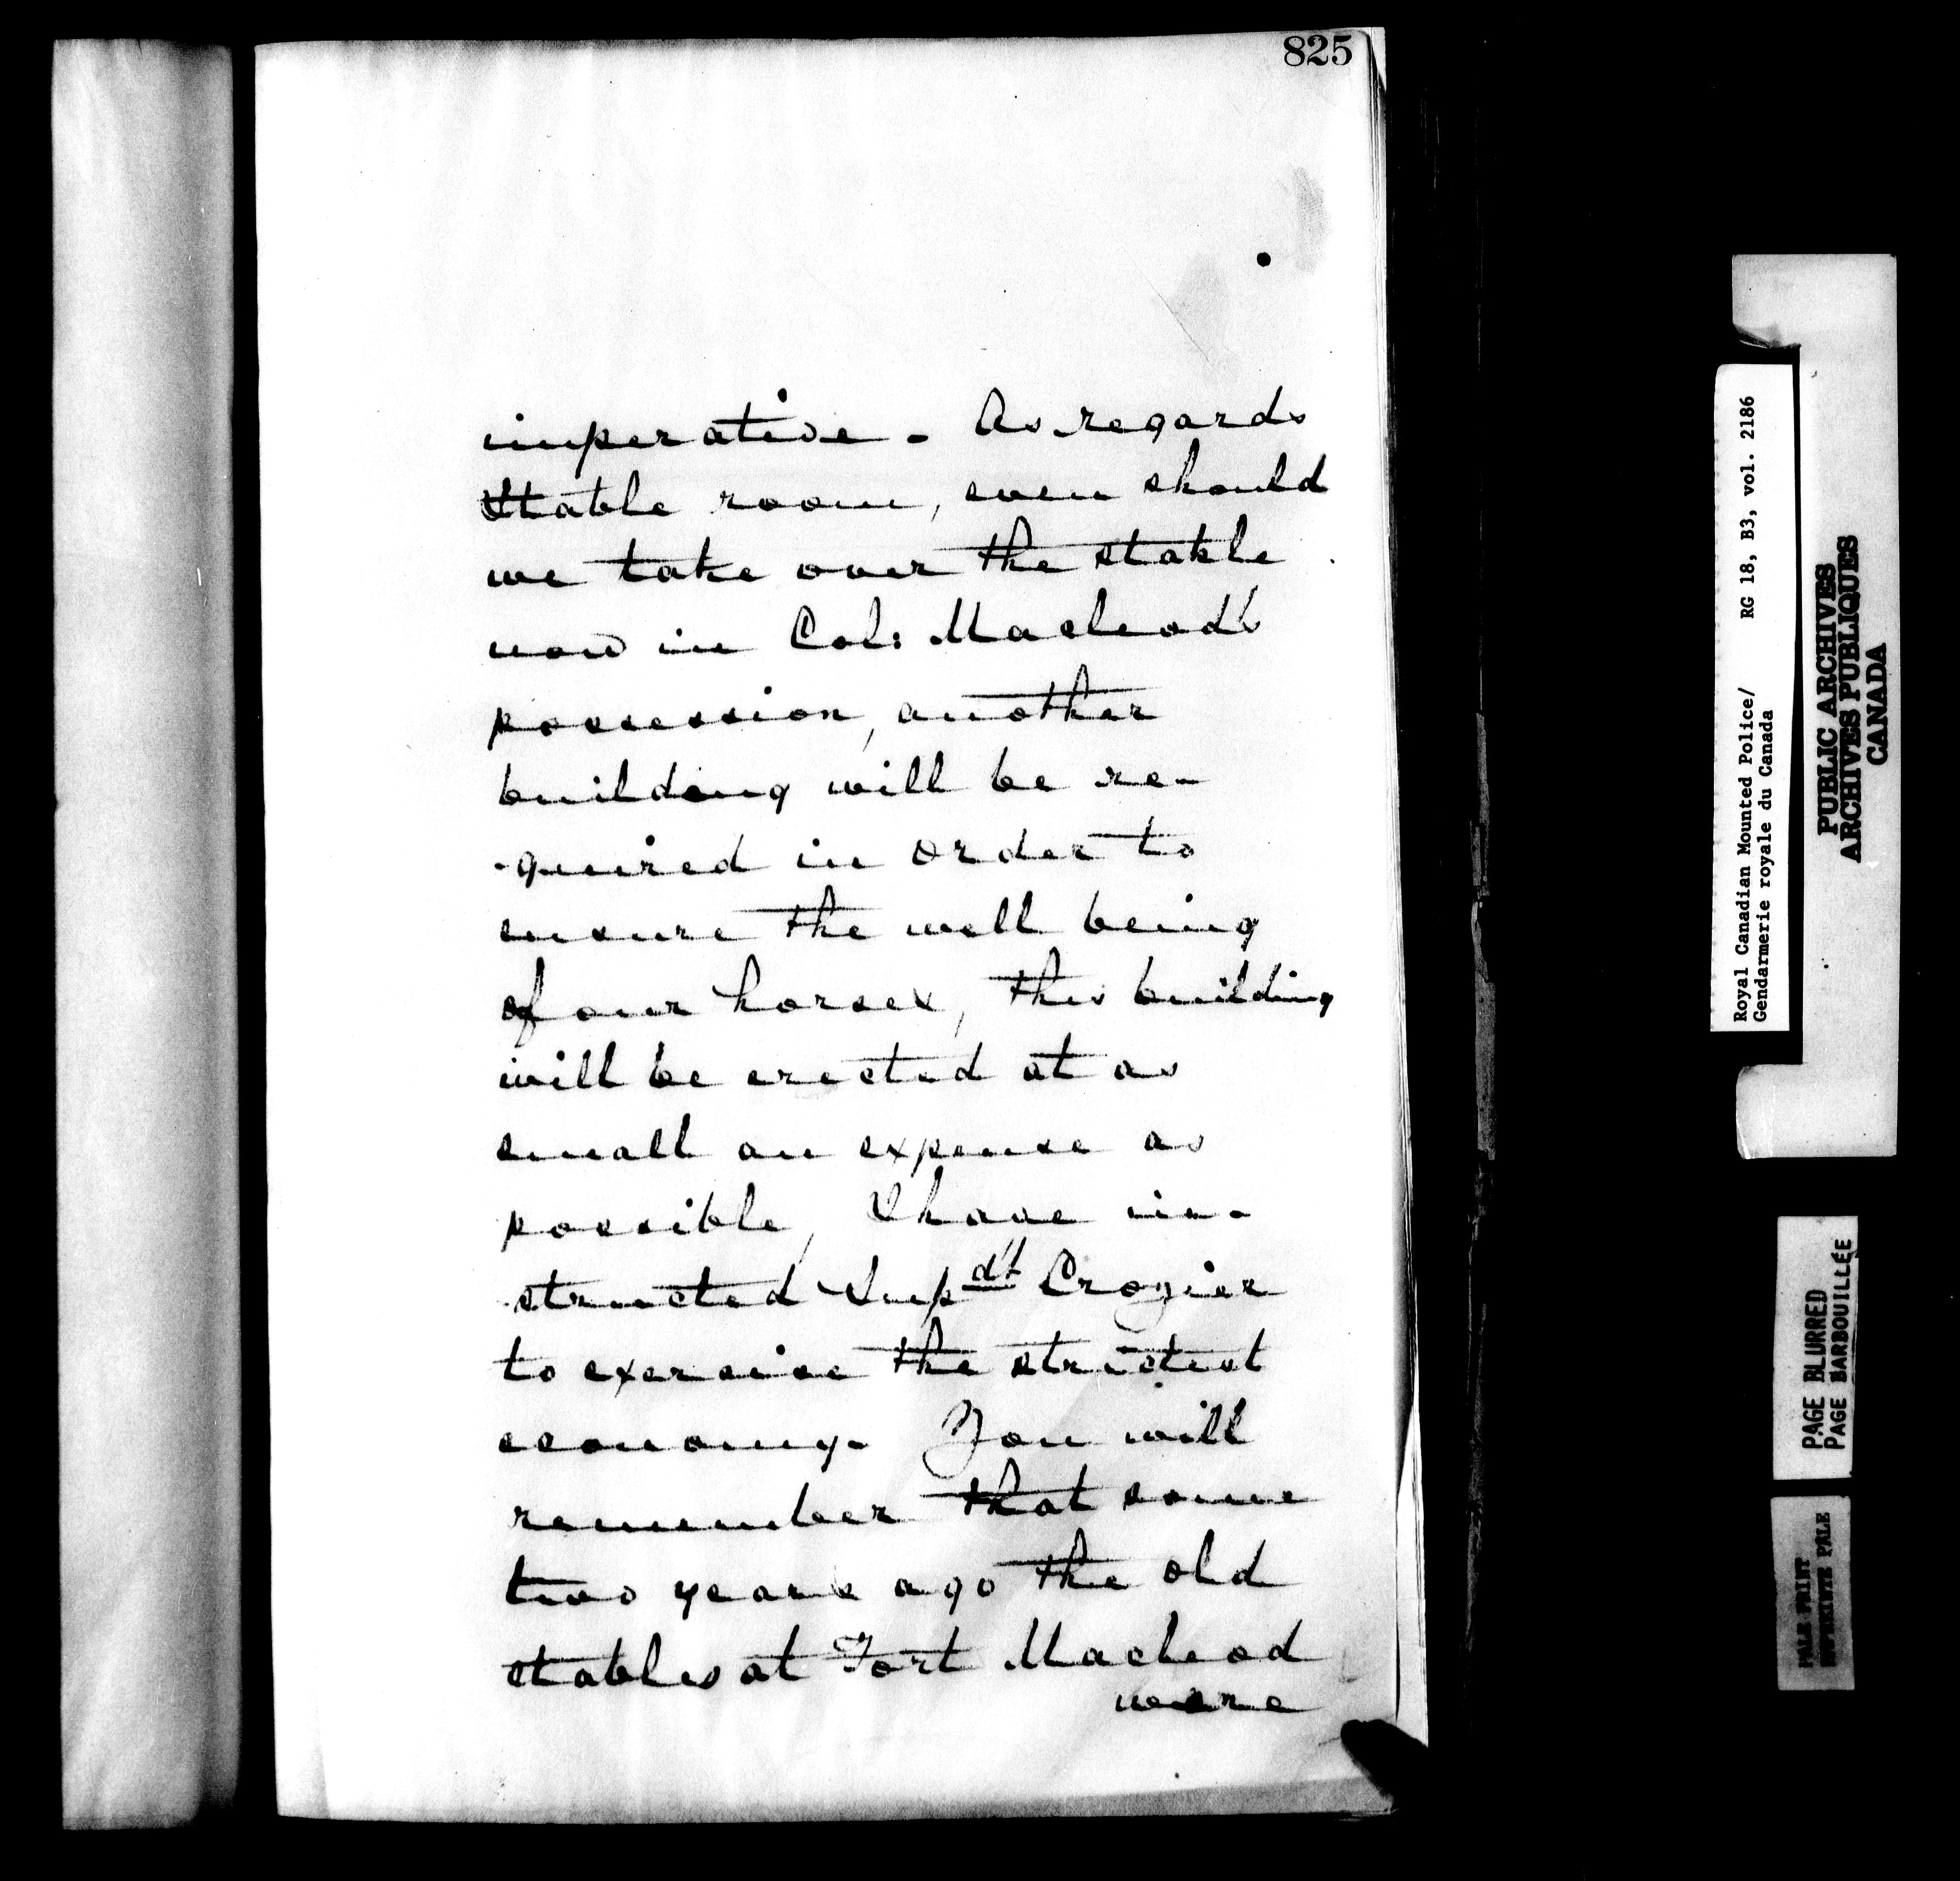 825
imperative - As regards
Stable room, even should
we take over the stable
now in Col: Macleod's
possession, another
building will be re-
-quired in order to
ensure the well being
of our horses, this building
will be erected at as
small an expense as
possible, I have in-
-structed Supdt Crozier
to exercise the strictest
economy. You will
remember that some
two years ago the old
stables at Fort Macleod
were
Royal Canadian Mounted Police/ RG 18, B3, vol. 2186
Gendarmerie royale du Canada
PUBLIC ARCHIVES
ARCHIVES PUBLIQUES
CANADA
PAGE BLURRED
PAGE BARBOUILLÉE
PALE PRINT
IMPRIMÉ PALE